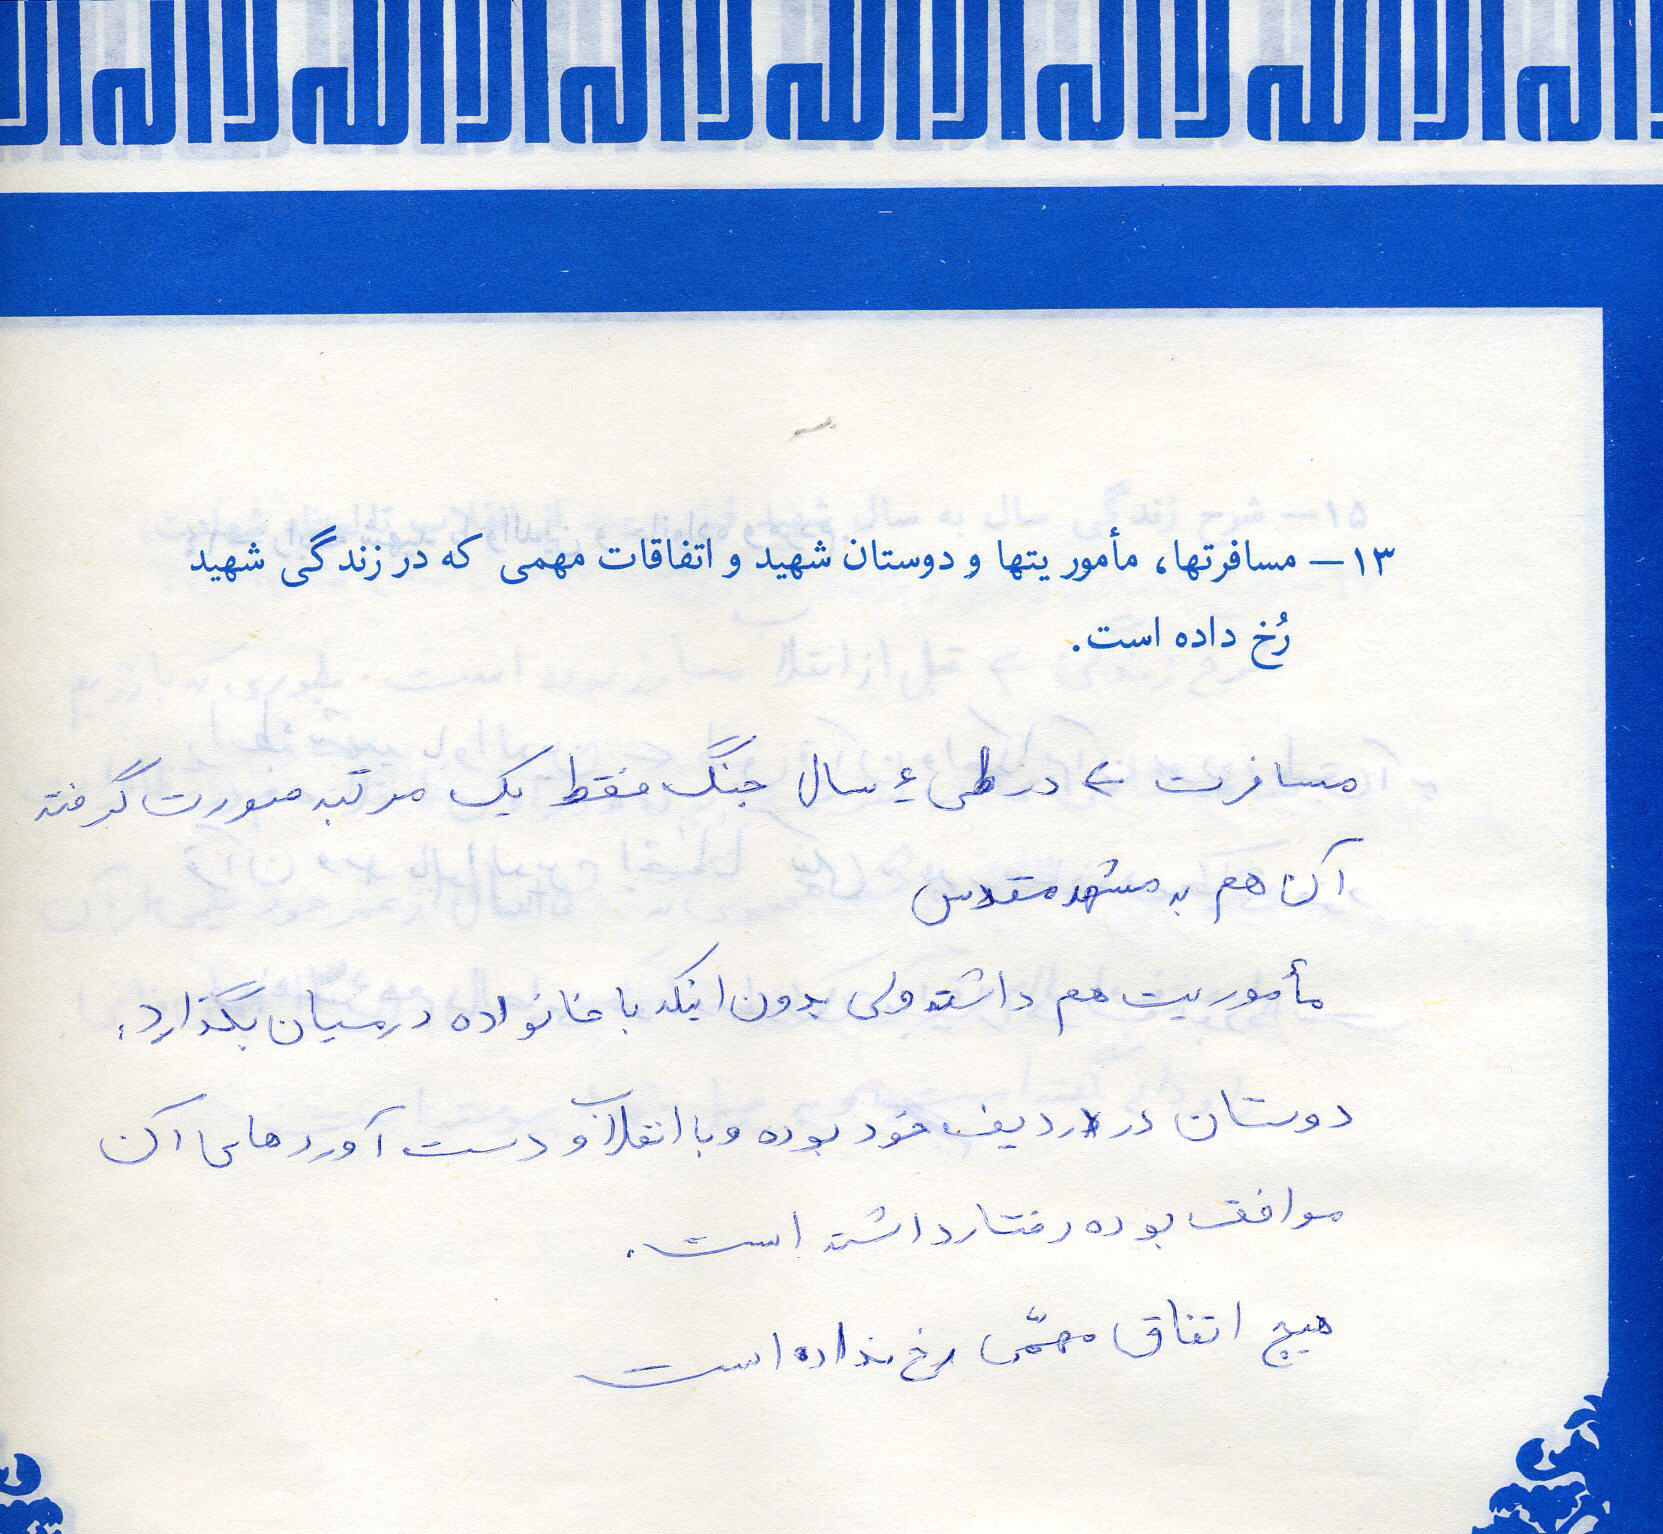 ۱۳ــ مسافرتها، مأموریتها و دوستان شهید و اتفاقات مهمی که در زندگی شهید
رُخ داده است.
مسافرت در طی ۴ سال جنگ فقط یک مرتبه صورت گرفته
آن هم به مشهد مقدس
مأموریت هم داشته ولی بدون اینکه با خانواده درمیان بگذارد.
دوستان در ردیف خود بوده و با انقلاب و دست آوردهای آن
موافق بوده رفتار داشته است.
هیچ اتفاق مهمّی رخ نداده است